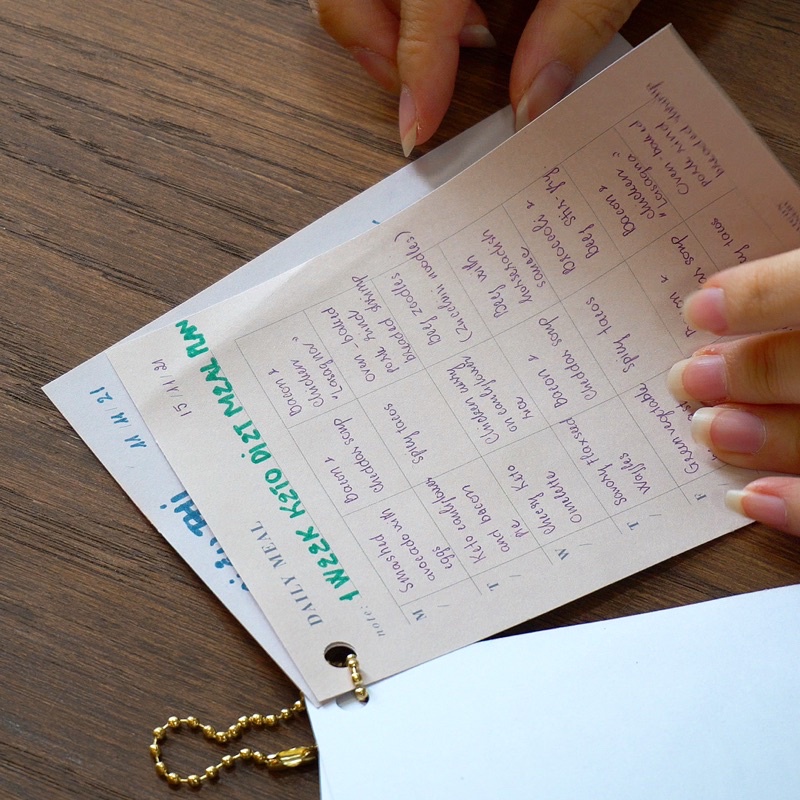 DAILY MEAL
15/11/21
note: 1 WEEK KETO DIET MEAL PLAN
M
Smashed
avocado with
eggs
Bacon &
cheddar soup
Bacon &
chicken
"Lasagna"
T
Keto cauliflower
and bacon
pie
Spicy tacos
Oven-baked
pork rind
breaded shrimp
W
Cheesy Keto
Omelette
Chicken curry
on cauliflower
rice
Beef zoodles
(zucchini noodles)
T
Savory flaxseed
Waffles
Bacon &
Cheddar soup
Beef with
horseradish
sauce
F
Green vegetable
Spicy tacos
Broccoli &
Beef stir-fry
soup
Bacon &
chicken
"lasagna"
tacos
Oven-baked
pork rind
breaded shrimp
11/11/21
THI